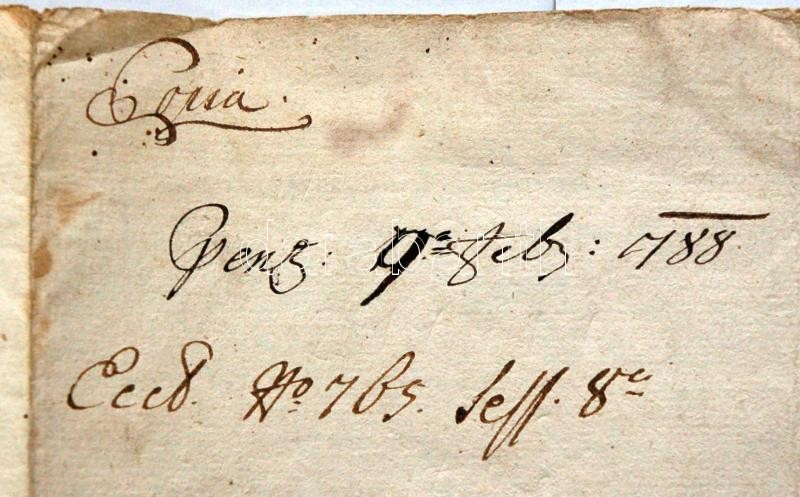 Copia.
penz: 9a Feb: 788
Eccl. No 765. Sess. 8va